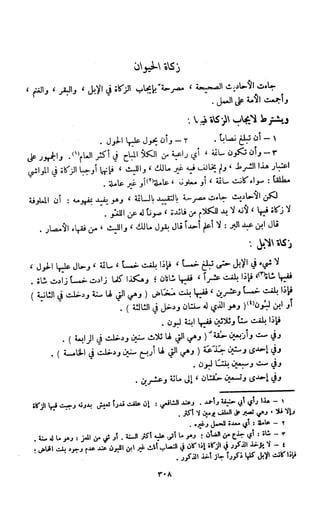 زكاة الحيوان
جاءت الأحاديث الصحيحة ، مصرحة بإيجاب الزكاة في الإبل ، والبقر ، والغنم ،
وأجمعت الأمة على العمل .
ويشترط لإيجاب الزكاة فيها :
١ - أن تبلغ نصاباً . ٢ - وأن يحول عليها الحول .
٣ - وأن تكون سائمة ، أي راعية من الكلأ المباح في أكثر العام(١). والجمهور على
اعتبار هذا الشرط ، ولم يخالف فيه غير مالك ، والليث ، فإنها أوجبا الزكاة في المواشي
مطلقاً : سواء كانت سائمة ، أو معلوفة ، عاملة(٢) أو غير عاملة .
لكن الأحاديث جاءت مصرحة بالتقييد بالسائمة ، وهو يفيد بمفهومه : أن المعلوفة
لا زكاة فيها ، لأنه لا بد للكلام من فائدة ، صوناً له عن اللغو .
قال ابن عبد البر : لا أعلم أحداً قال بقول مالك ، والليث ، من فقهاء الأمصار .
زكاة الإبل :
لا شيء في الإبل حتى تبلغ خمساً ، فإذا بلغت خمساً ، سائمة ، وحال عليها الحول ،
ففيها شاة(٣) فإذا بلغت عشراً ، ففيها شاتان ؛ وهكذا كلما زادت خمساً زادت شاة .
فإذا بلغت خمساً وعشرين ، ففيها بنت مخاض ( وهي التي لها سنة ودخلت في الثانية )
أو ابن لبون(٤) ( وهو الذي له سنتان ودخل في الثالثة ) .
فإذا بلغت ستاً وثلاثين ففيها ابنة لبون .
وفي ست وأربعين حقة ( وهي التي لها ثلاث سنين ودخلت في الرابعة ) .
وفي إحدى وستين جذعة ( وهي التي لها أربع سنين ودخلت في الخامسة ) .
وفي ست وسبعين بنتا لبون .
وفي إحدى وتسعين حقتان ، إلى مائة وعشرين .
١ - هذا رأي أبي حنيفة وأحمد . وعند الشافعي : إن علفت قدراً تعيش بدونه وجبت فيها الزكاة
وإلا فلا ، وهي تصبر على العلف يومين لا أكثر .
٢ - عاملة : أي معدة للحمل وغيره .
٣ - شاة : أي جذع من الضأن : وهو ما أتى عليه أكثر السنة . أو ثني من المعز : وهو ما له سنة .
٤ - لا يؤخذ الذكور في الزكاة إذا كان في النصاب أناث غير ابن اللبون عند عدم وجود بنت المخاض ؛
فإذا كانت الإبل كلها ذكوراً جاز أخذ الذكور .
٣٠٨